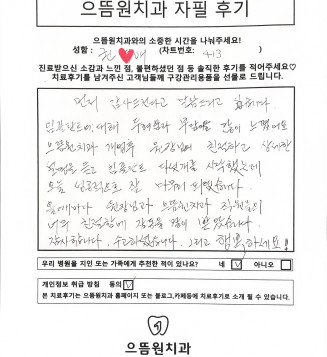 으뜸원치과 자필 후기
으뜸원치과와의 소중한 시간을 나눠주세요!
성함 : 천 애 (차트번호: 413 )
진료받으신 소감과 느낀 점, 불편하셨던 점 등 솔직한 후기를 적어주세요♡
치료후기를 남겨주신 고객님들께 구강관리용품을 선물로 드립니다.
먼저 감사드린다고 말씀드리고
임플란트에 대해 두려움과 부담감을 많이 느꼈어요
으뜸원치과 원장님의 친절하고 상세한
설명을 듣고 임플란트 시작했는데
오늘 성공적으로 잘 마무리 되었습니다.
올때마다 원장님과 으뜸원치과 직원들의
너무 친절함에 감동을 많이 받았습니다.
감사합니다. 수고하셨습니다. 그리고 행복하세요!
우리 병원을 지인 또는 가족에게 추천한 적이 있나요? 네 ☑ 아니오 ☐
개인정보 취급 방침 동의 ☑
본 치료후기는 으뜸원치과 홈페이지 또는 블로그,카페등에 치료후기로 소개 될 수 있습니다.
으뜸원치과